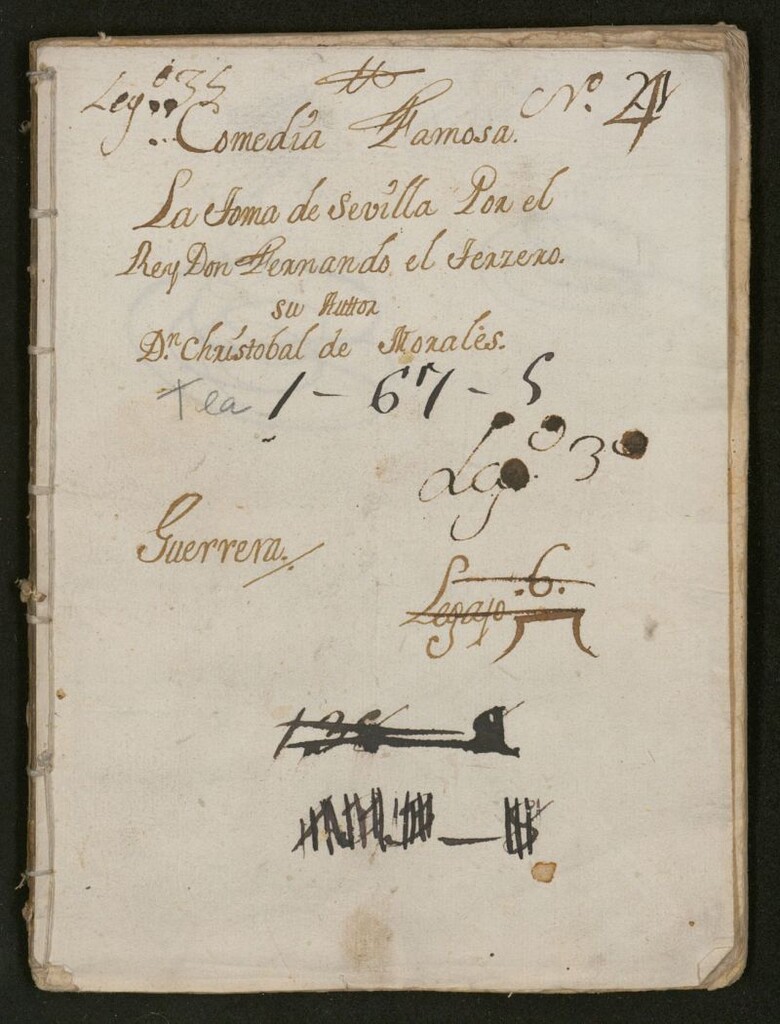 Leg.º 35
Nº. 21
Comedia Famosa.
La Toma de Sevilla Por el
Rey Don Fernando, el Terzero.
su Auttor
D.n Christobal de Morales.
Tea 1-67-5
Leg.º 3º
Guerrera.
Legajo .6.